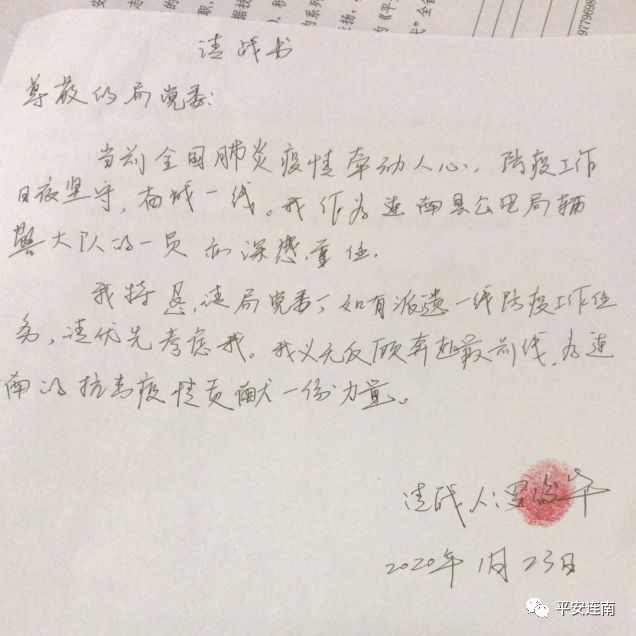 请战书
尊敬的局党委:
当前全国肺炎疫情牵动人心，防疫工作
日夜坚守，奋战一线。我作为连南县公安局辅
警大队的一员 深感重任.
我特 请局党委，如有派遣一线防疫工作任
务，请优先考虑我。我义无反顾奔赴最前线，为连
南的抗击疫情贡献一份力量。
请战人:罗
2020年1月23日
平安连南
9779698